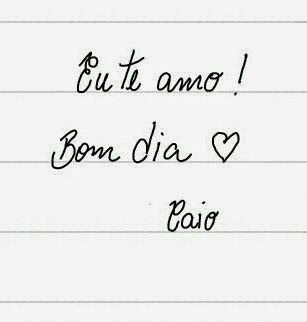 Eu te amo!
Bom dia ♡
Caio